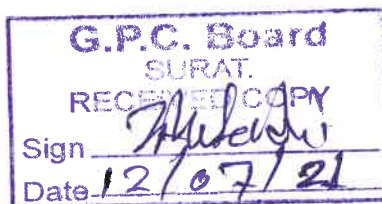 G.P.C. Board
SURAT.
RECEIVED COPY
Sign
Date 12/07/21